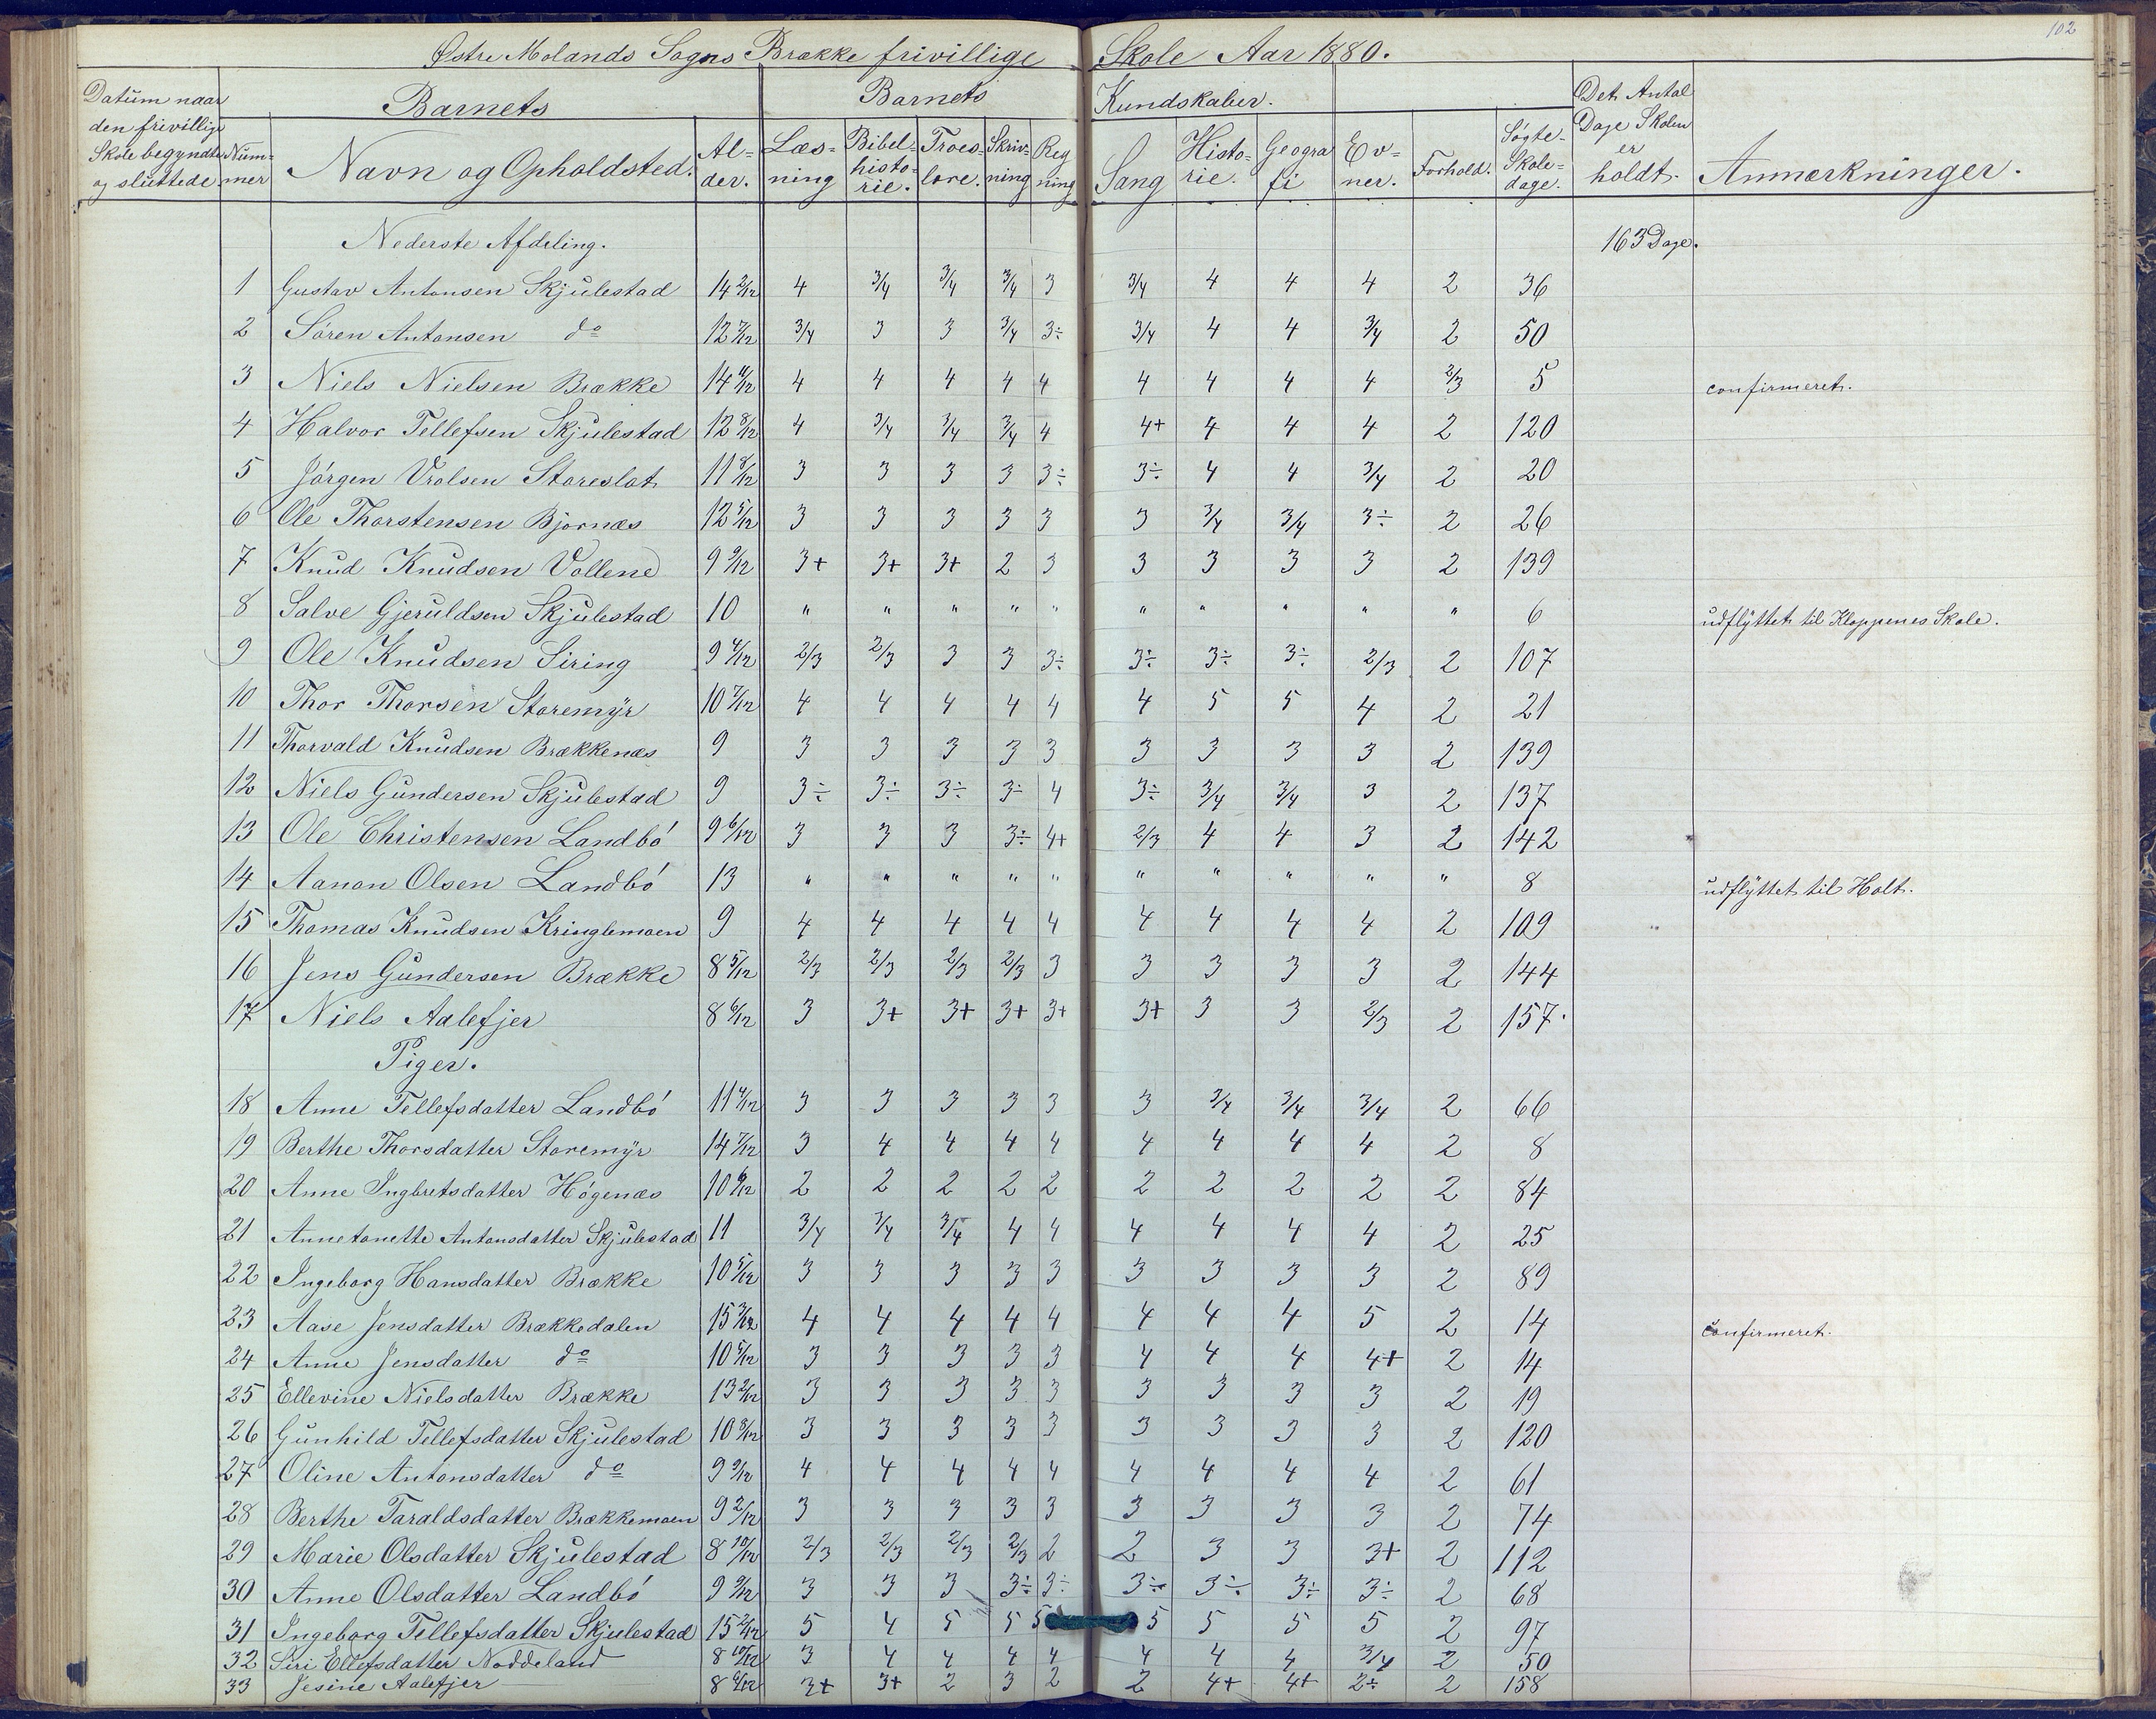 102
Østre Molands Sogns Brække frivillige Skole Aar 1880.
Datum naar den frivillige Skole begyndte og sluttede | Num=mer | Barnets Navn og Opholdsted. | Al=der. | Barnets Kundskaber. Læs=ning | Bibel=histo=rie. | Troes=lære. | Skriv=ning | Reg ning | Sang | Histo=rie. | Geogra fi | Ev=ner. | Forhold. | Søgte Skole=dage. | Det Antal Dage Skolen er holdt. | Anmærkninger.
Nederste Afdeling. 163 Dage.
1 Gustav Antonsen Skjulestad 14 2/12 4 3/4 3/4 3/4 3 3/4 4 4 4 2 36
2 Søren Antonsen do 12 7/12 3/4 3 3 3/4 3÷ 3/4 4 4 3/4 2 50
3 Niels Nielsen Brække 14 11/12 4 4 4 4 4 4 4 4 4 2/3 5 confirmeret.
4 Halvor Tellefsen Skjulestad 12 8/12 4 3/4 3/4 3/4 4 4+ 4 4 4 2 120
5 Jørgen Vrolsen Storeslot 11 8/12 3 3 3 3 3÷ 3÷ 4 4 3/4 2 20
6 Ole Thorstensen Bjornæs 12 5/12 3 3 3 3 3 3 3/4 3/4 3÷ 2 26
7 Knud Knudsen Vollene 9 9/12 3+ 3+ 3+ 2 3 3 3 3 3 2 139
8 Salve Gjeruldsen Skjulestad 10 " " " " " " " " " " 6 udflyttet til Kloppenes Skole.
9 Ole Knudsen Siring 9 4/12 2/3 2/3 3 3 3÷ 3÷ 3÷ 3÷ 2/3 2 107
10 Thor Thorsen Storemyr 10 7/12 4 4 4 4 4 4 5 5 4 2 21
11 Thorvald Knudsen Brækkenæs 9 3 3 3 3 3 3 3 3 3 2 139
12 Niels Gundersen Skjulestad 9 3÷ 3÷ 3÷ 3÷ 4 3÷ 3/4 3/4 3 2 137
13 Ole Christensen Landbó 9 6/12 3 3 3 3÷ 4+ 2/3 4 4 3 2 142
14 Aanon Olsen Landbó 13 " " " " " " " " " " 8 udflyttet til Holt.
15 Thomas Knudsen Kringlemoen 9 4 4 4 4 4 4 4 4 4 2 109
16 Jens Gundersen Brække 8 5/12 2/3 2/3 2/3 2/3 3 3 3 3 3 2 144
17 Niels Aalefjer 8 6/12 3 3+ 3+ 3+ 3+ 3+ 3 3 2/3 2 157.
Piger.
18 Anne Tellefsdatter Landbó 11 4/12 3 3 3 3 3 3 3/4 3/4 3/4 2 66
19 Berthe Thorsdatter Storemyr 14 7/12 3 4 4 4 4 4 4 4 4 2 8
20 Anne Ingbretsdatter Høgenæs 10 6/12 2 2 2 2 2 2 2 2 2 2 84
21 Annetonette Antonsdatter Skjulestad 11 3/4 3/4 3/4 4 4 4 4 4 4 2 25
22 Ingeborg Hansdatter Brække 10 5/12 3 3 3 3 3 3 3 3 3 2 89
23 Aase Jensdatter Brækkedalen 15 3/12 4 4 4 4 4 4 4 4 5 2 14 confirmeret.
24 Anne Jensdatter do 10 5/12 3 3 3 3 3 4 4 4 4+ 2 14
25 Ellevine Nielsdatter Brække 13 2/12 3 3 3 3 3 3 3 3 3 2 19
26 Gunhild Tellefsdatter Skjulestad 10 8/12 3 3 3 3 3 3 3 3 3 2 120
27 Oline Antonsdatter do 9 9/12 4 4 4 4 4 4 4 4 4 2 61
28 Berthe Taraldsdatter Brækkemoen 9 2/12 3 3 3 3 3 3 3 3 3 2 74
29 Marie Olsdatter Skjulestad 8 10/12 2/3 2/3 2/3 2/3 2 2 3 3 3+ 2 112
30 Anne Olsdatter Landbó 9 9/12 3 3 3 3÷ 3÷ 3÷ 3÷ 3÷ 3÷ 2 68
31 Ingeborg Tellefsdatter Skjulestad 15 2/12 5 4 5 5 5 5 5 5 5 2 97
32 Siri Ellefsdatter Noddeland 8 10/12 3 4 4 4 4 4 4 4 3/4 2 50
33 Jesine Aalefjer 8 6/12 3+ 3+ 2 3 2 2 4+ 4+ 2÷ 2 158